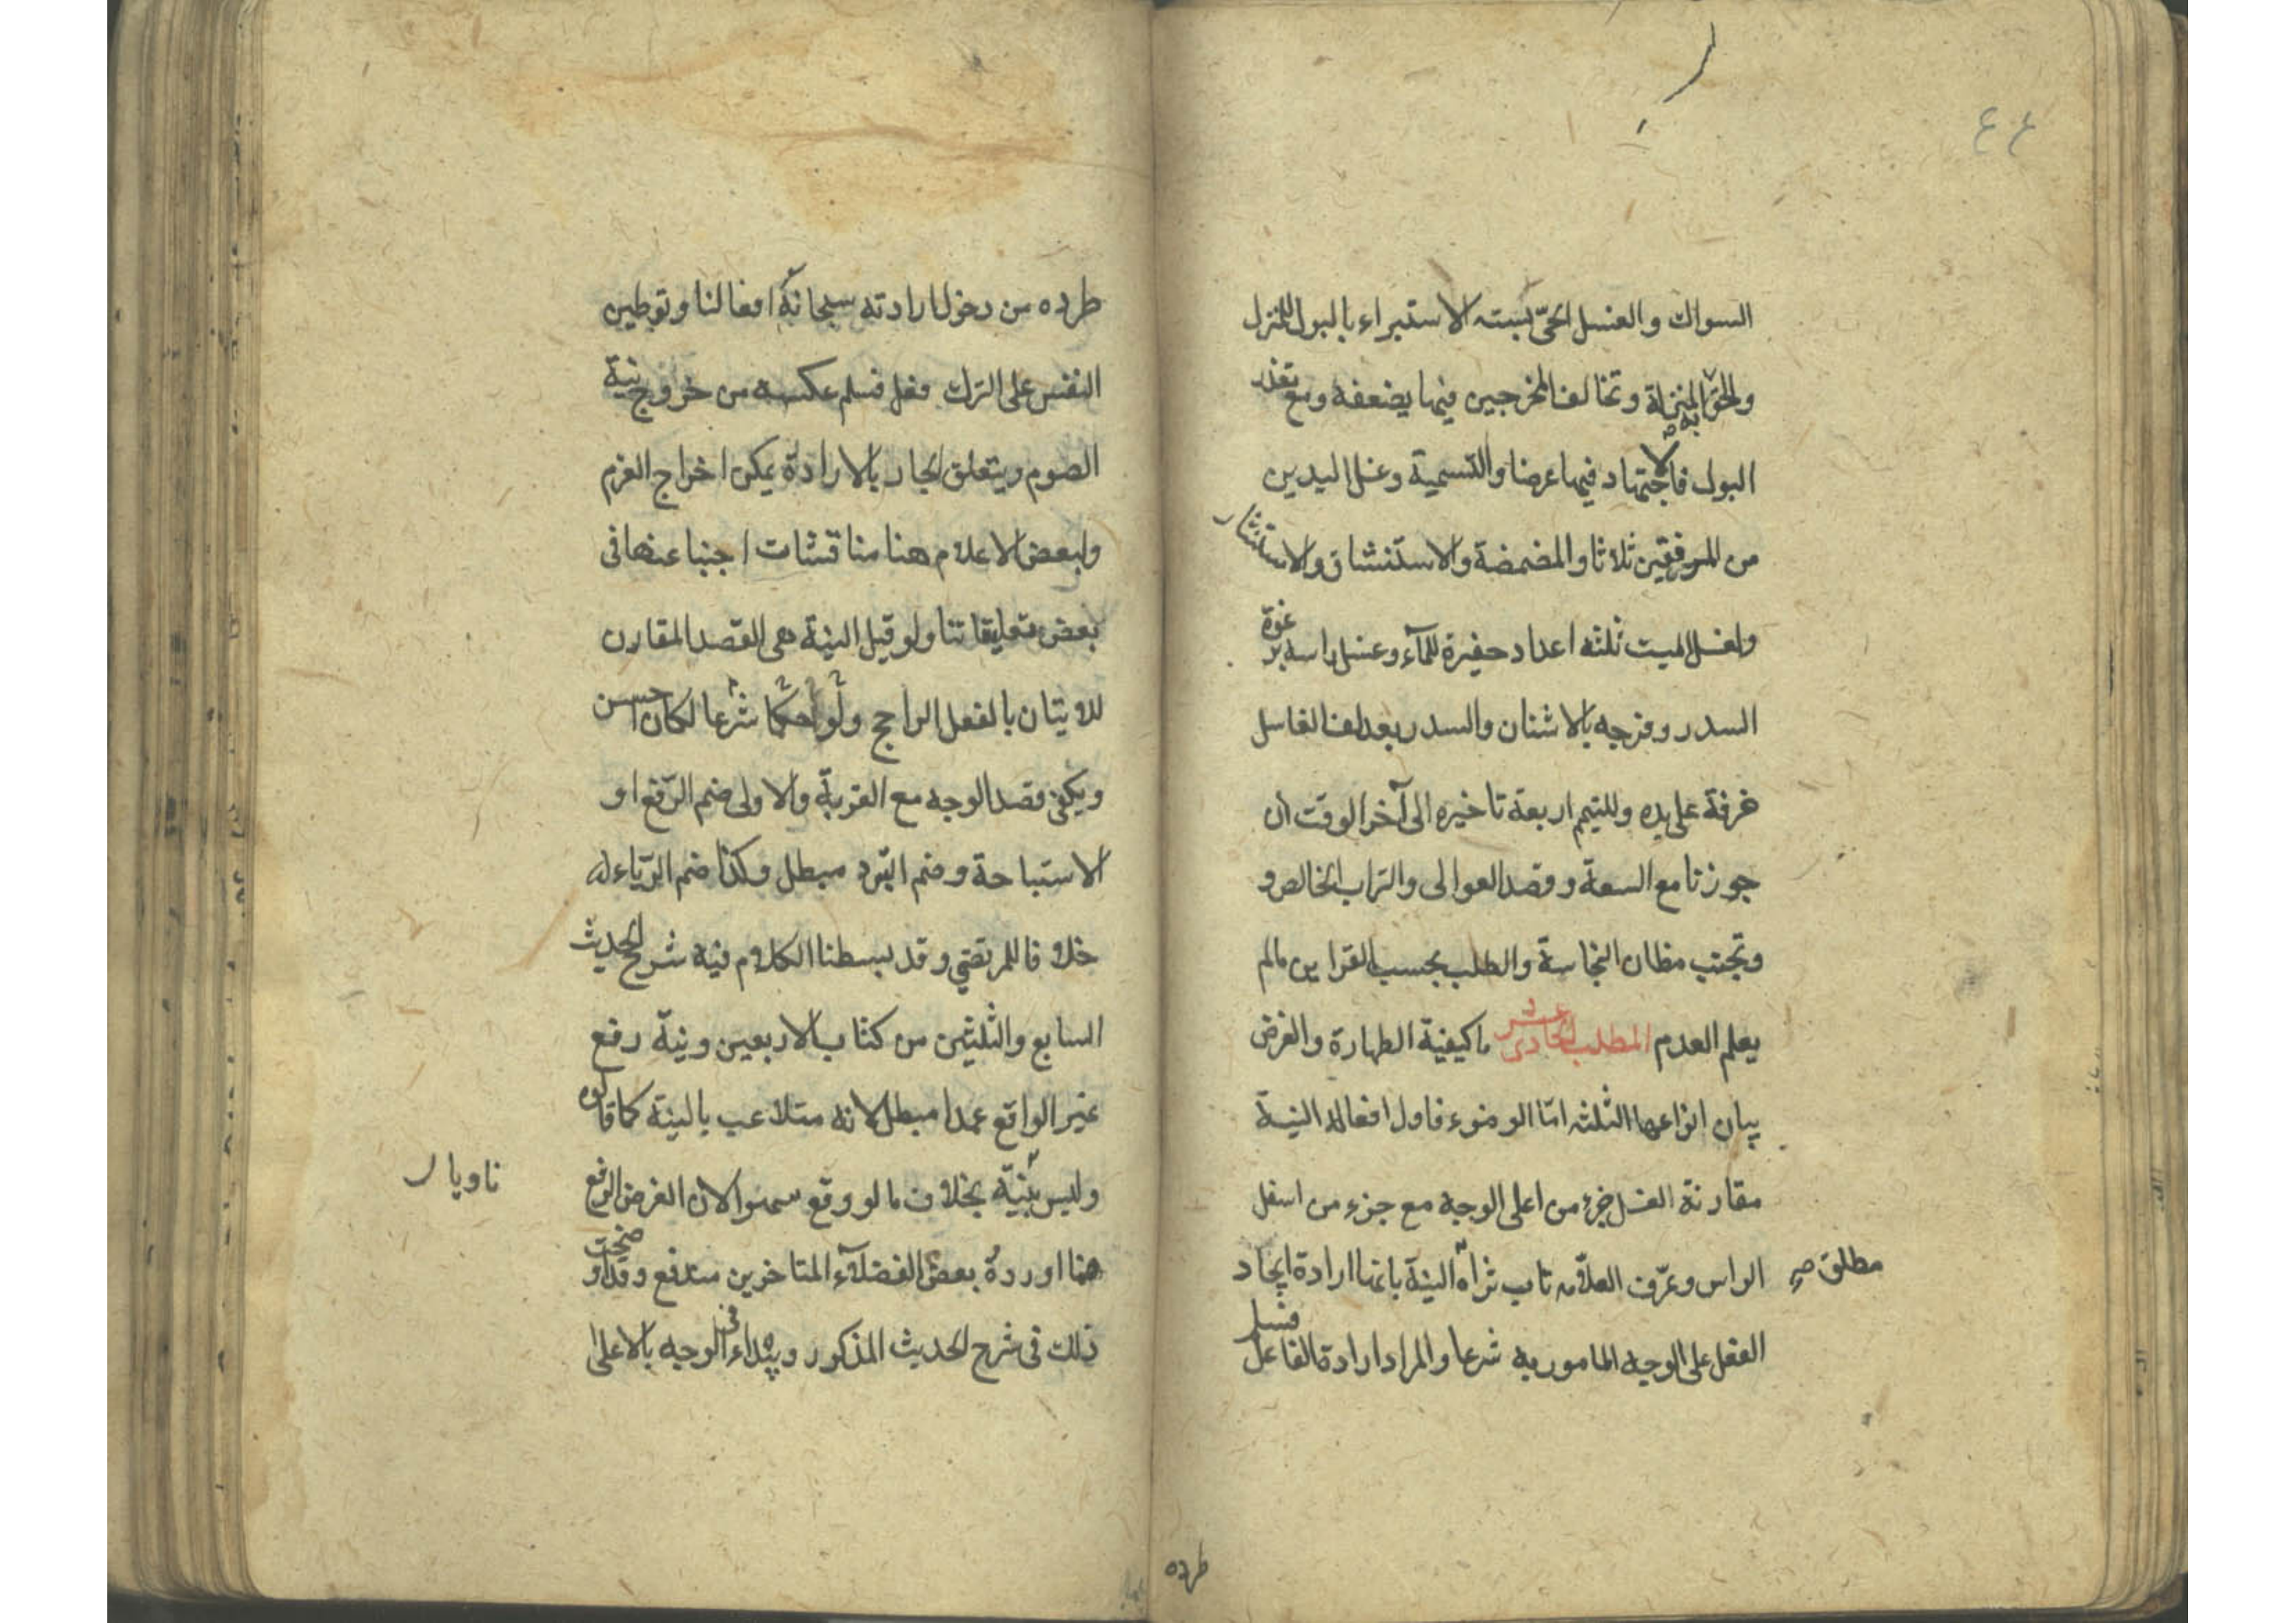 ٤٤
السواك والغسل الحيّ بسته الاستبراء بالبول للمنزل
والحق به المنزلة وتخالف المخرجين فيها يضعفه ومع تعذر
البول فالاجتهاد فيها عرضا والتسمية وغسل اليدين
من المرفقين ثلاثا والمضمضة والاستنشاق والاستنثار
ولغسل الميت ثلثه اعداد حفيرة للمآء وغسل راسه برغوة
السدر وفرجه بالاشنان والسدر بعد لف الغاسل
خرقة على يده وللتيمم اربعة تاخيره الى آخر الوقت ان
جوزنا مع السعة وقصد العوالى والتراب الخالص و
وتجنب مظان النجاسة والطلب بحسب القراين مالم
يعلم العدم المطلب الحادى عشر ما كيفية الطهارة والغرض
بيان انواعها الثلثه امّا الوضوء فاول افعاله النية
مقارنة الغسل جزء من اعلى الوجه مع جزء من اسفل
الراس وعرّف العلاّمه تاب ثراه النية بانها ارادة ايجاد
مطلق صح
الفعل على الوجه المامور به شرعا والمراد ارادة الفاعل فسلم
طرده
طرده من دخول ارادته سبحانه افعالنا وتوطين
النفس على الترك فعل فسلم عكسه من خروج نية
الصوم ويتعلق الجار بالارادة يمكن اخراج العزم
ولبعض الاعلام هنا مناقشات اجبنا عنها فى
بعض تعليقاتنا ولو قيل النية هى القصد المقارن
للاتيان بالفعل الراجح ولو حكما شرعا لكان احسن
ويكفى قصد الوجه مع القربة والاولى ضم الرّفع او
الاستباحة وضم التبرد مبطل وكذا ضم الرّياء له
خلافا للمرتضى وقد بسطنا الكلام فيه شرح الحديث
السابع والثلثين من كتاب الاربعين ونيّة رفع
غير الواقع عمدا مبطل لانه متلاعب بالنية كما قالوه
وليس بنيّة بخلاف ما لو وقع سهوا لان الغرض الرفع
ناويا ر
فما اورده بعض الفضلاء المتاخرين مندفع وقد اوضحت
ذلك فى شرح الحديث المذكور ويبداء فى الوجه بالاعلى